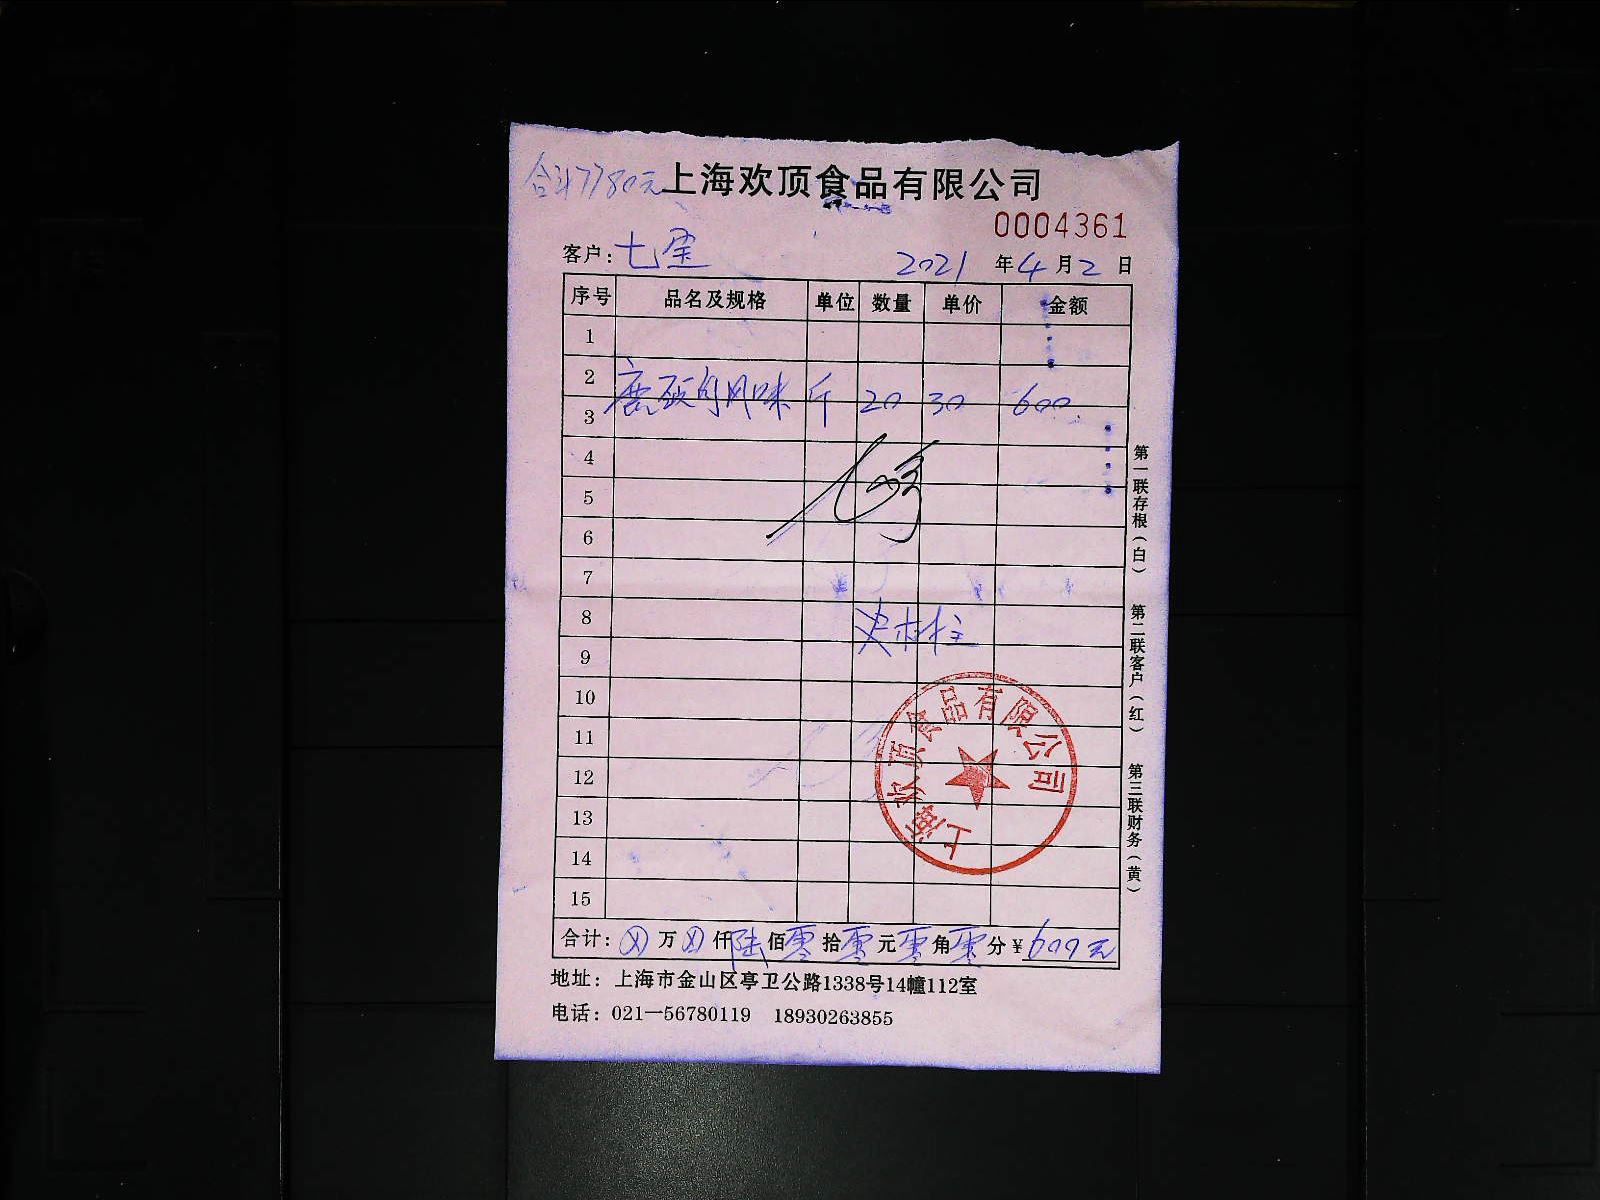 合计7780元
上海欢顶食品有限公司
0004361
客户：七宝 2021年4月2日
序号 品名及规格 单位 数量 单价 金额
1
2
风味 斤 20 30 600
3
4
5
6
7
8
9
10
11
12
13
14
15
上海欢顶食品有限公司
合计：⊗万⊗仟陆佰零拾零元零角零分¥600元
地址：上海市金山区亭卫公路1338号14幢112室
电话：021—56780119 18930263855
第一联存根（白） 第二联客户（红） 第三联财务（黄）